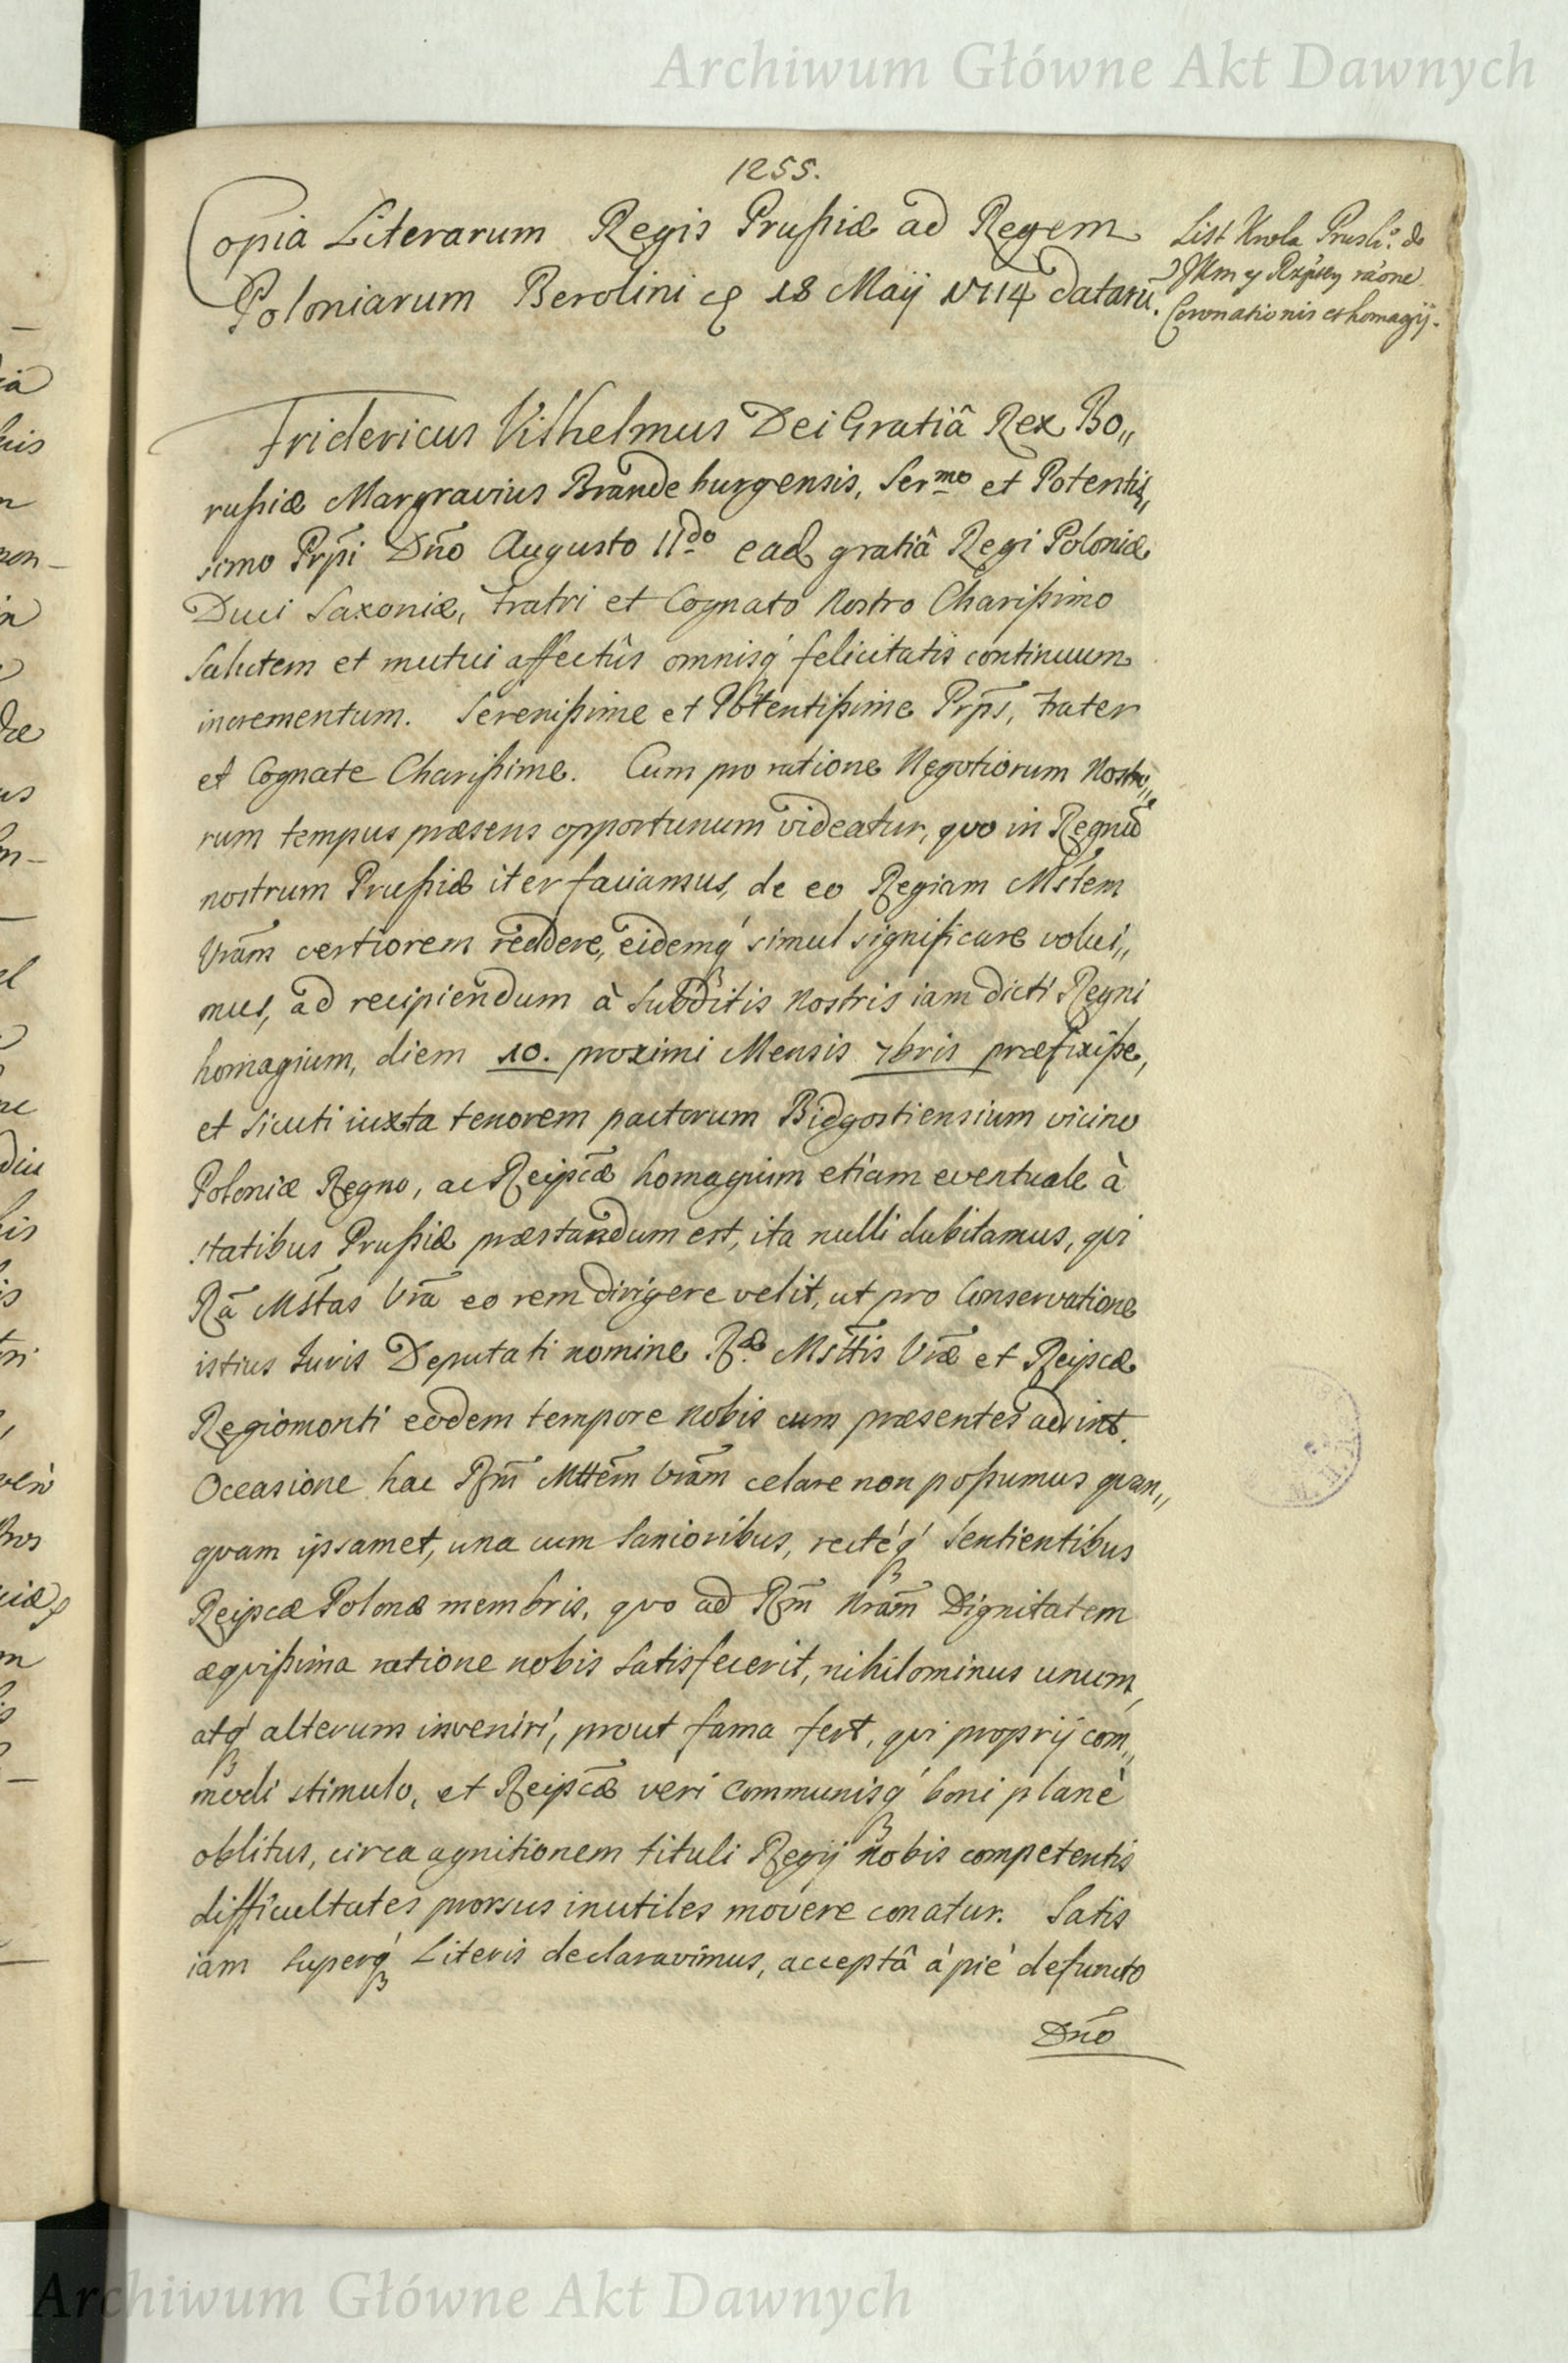 Archiwum Główne Akt Dawnych
1255.
Copia Literarum Regis Prußiæ ad Regem
Poloniarum Berolini 18 Maij 1714 datarũ.
List Krola Prusk:º do
JKm y Rzpltey ráone
Coronationis et homagij.
Fridericus Vilhelmus Dei Gratiâ Rex Bo„
rußiæ Margravius Brandeburgensis, Ser^mo et Potentis„
simo Prp̃i Dño Augusto II^do ead gratiâ Regi Poloniæ
Duci Saxoniæ, Fratri et Cognato Nostro Charißimo
Salutem et mutui affectûs omnisq́ felicitatis continuum
incrementum. Serenißime et Potentißime Prp̃s, Frater
et Cognate Charißime. Cum pro ratione Negotiorum Nostro„
rum tempus præsens opportunum videatur, quo in Regnũ
nostrum Prußiæ iter faciamus, de eo Regiam Ms̃tem
Vrãm certiorem reddere, eidemq́ simul significare volui„
mus, ad recipiendum à Subditis Nostris iam dicti Regni
homagium, diem 10. proximi Mensis 7bris præfixiße,
et Sicuti iuxta tenorem pactorum Bidgostiensium vicino
Poloniæ Regno, ac Reipcæ̃ homagium etiam eventuale à
Statibus Prußiæ præstandum est, ita nulli dubitamus, qui
Rã Ms̃tas Vrã eo rem dirigere velit, ut pro Conservatione
istius Iuris Deputati nomine R^æ Mst̃tis Vræ̃ et Reipcæ
Regiomonti eodem tempore nobis cum præsentes adsint.
Occasione hac Rm̃ Mttẽm Vrãm celare non poßumus quan„
quam ipsamet, una cum Sanioribus, rectéq́ Sentientibus
Reipcæ Polonæ membris, quo ad Rm̃ Nrãm Dignitatem
æquißima ratione nobis Satisfecerit, nihilominus unum,
atq́ alterum inveniri, prout fama fert, qui proprij com„
modi stimulo, et Reipcæ̃ veri Communisq́ boni planè
oblitus, circa agnitionem tituli Regij nobis competentis
difficultates prorsus inutiles movere conatur. Satis
iam Superq́ Literis declaravimus, acceptâ á pié defuncto
Dño
Archiwum Główne Akt Dawnych